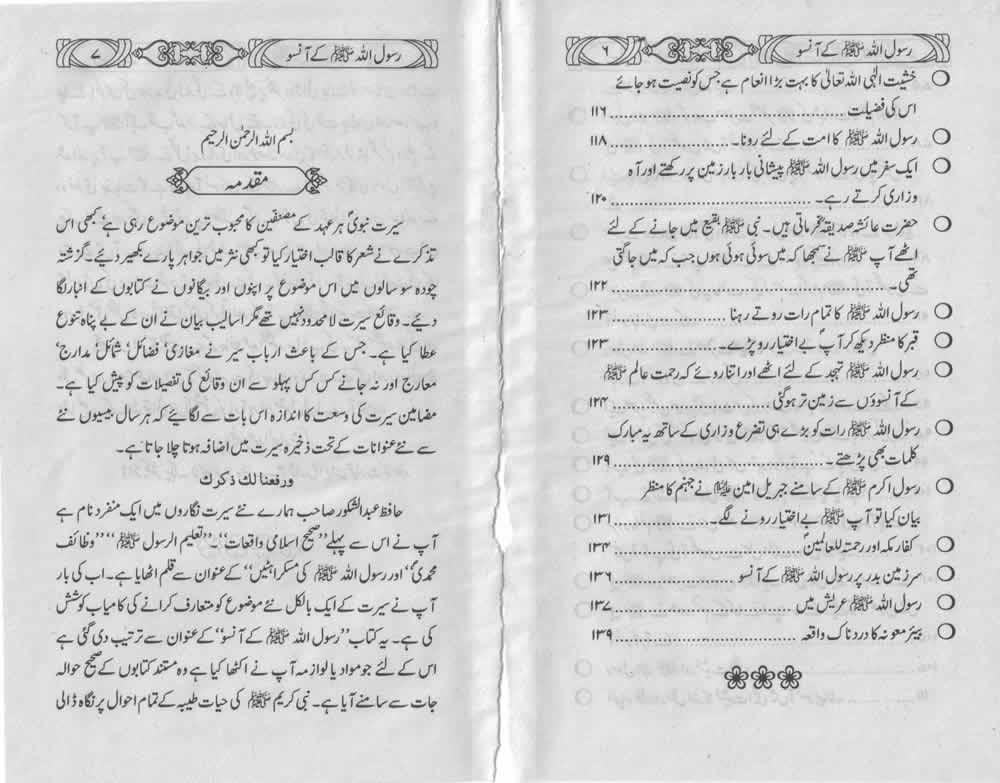 رسول اللہ ﷺ کے آنسو
۶
خشیت الٰہی اللہ تعالیٰ کا بہت بڑا انعام ہے جس کو نصیت ہو جائے
اس کی فضیلت ........................................ ۱۱۶
رسول اللہ ﷺ کا امت کے لئے رونا۔ ........................................ ۱۱۸
ایک سفر میں رسول اللہ ﷺ پیشانی بار بار زمین پر رکھتے اور آہ
وزاری کرتے رہے۔ ........................................ ۱۲۰
حضرت عائشہ صدیقہؓ فرماتی ہیں۔ نبی ﷺ بقیع میں جانے کے لئے
اٹھے آپ ﷺ نے سمجھا کہ میں سوئی ہوئی ہوں جب کہ میں جاگتی
تھی۔ ........................................ ۱۲۲
رسول اللہ ﷺ کا تمام رات روتے رہنا ........................................ ۱۲۳
قبر کا منظر دیکھ کر آپؐ بے اختیار رو پڑے۔ ........................................ ۱۲۳
رسول اللہ ﷺ تہجد کے لئے اٹھے اور اتنا روئے کہ رحمت عالم ﷺ
کے آنسوؤں سے زمین تر ہو گئی ........................................ ۱۲۴
رسول اللہ ﷺ رات کو بڑے ہی تضرع وزاری کے ساتھ یہ مبارک
کلمات بھی پڑھتے۔ ........................................ ۱۲۹
رسول اکرم ﷺ کے سامنے جبریل امین علیہ السلام نے جہنم کا منظر
بیان کیا تو آپ ﷺ بے اختیار رونے لگے۔ ........................................ ۱۳۱
کفار مکہ اور رحمتہ للعالمینؐ ........................................ ۱۳۴
سرزمین بدر پر رسول اللہ ﷺ کے آنسو ........................................ ۱۳۶
رسول اللہ ﷺ عریش میں ........................................ ۱۳۷
بیئر معونہ کا دردناک واقعہ ........................................ ۱۳۹
رسول اللہ ﷺ کے آنسو
۷
بسم اللہ الرحمٰن الرحیم
مقدمہ
سیرت نبویؐ ہر عہد کے مصنفین کا محبوب ترین موضوع رہی ہے‘ کبھی اس
تذکرے نے شعر کا قالب اختیار کیا تو کبھی نثر میں جواہر پارے بکھیر دیئے۔ گزشتہ
چودہ سو سالوں میں اس موضوع پر اپنوں اور بیگانوں نے کتابوں کے انبار لگا
دیئے۔ وقائع سیرت لا محدود نہیں تھے مگر اسالیب بیان نے ان کے بے پناہ تنوع
عطا کیا ہے۔ جس کے باعث ارباب سیر نے مغازی‘ فضائل‘ شمائل‘ مدارج‘
معارج اور نہ جانے کس کس پہلو سے ان وقائع کی تفصیلات کو پیش کیا ہے۔
مضامین سیرت کی وسعت کا اندازہ اس بات سے لگائیے کہ ہر سال بیسیوں نئے
سے نئے عنوانات کے تحت ذخیرہ سیرت میں اضافہ ہوتا چلا جاتا ہے۔
ورفعنا لك ذكرك
حافظ عبدالشکور صاحب ہمارے نئے سیرت نگاروں میں ایک منفرد نام ہے
آپ نے اس سے پہلے ”صحیح اسلامی واقعات“۔ ”تعلیم الرسول ﷺ“ ”وظائف
محمدیؐ“ اور رسول اللہ ﷺ کی مسکراہٹیں“ کے عنوان سے قلم اٹھایا ہے۔ اب کی بار
آپ نے سیرت کے ایک بالکل نئے موضوع کو متعارف کرانے کی کامیاب کوشش
کی ہے۔ یہ کتاب ”رسول اللہ ﷺ کے آنسو“ کے عنوان سے ترتیب دی گئی ہے
اس کے لئے جو مواد یا لوازمہ آپ نے اکٹھا کیا ہے وہ مستند کتابوں کے صحیح حوالہ
جات سے سامنے آیا ہے۔ نبی کریم ﷺ کی حیات طیبہ کے تمام احوال پر نگاہ ڈالی